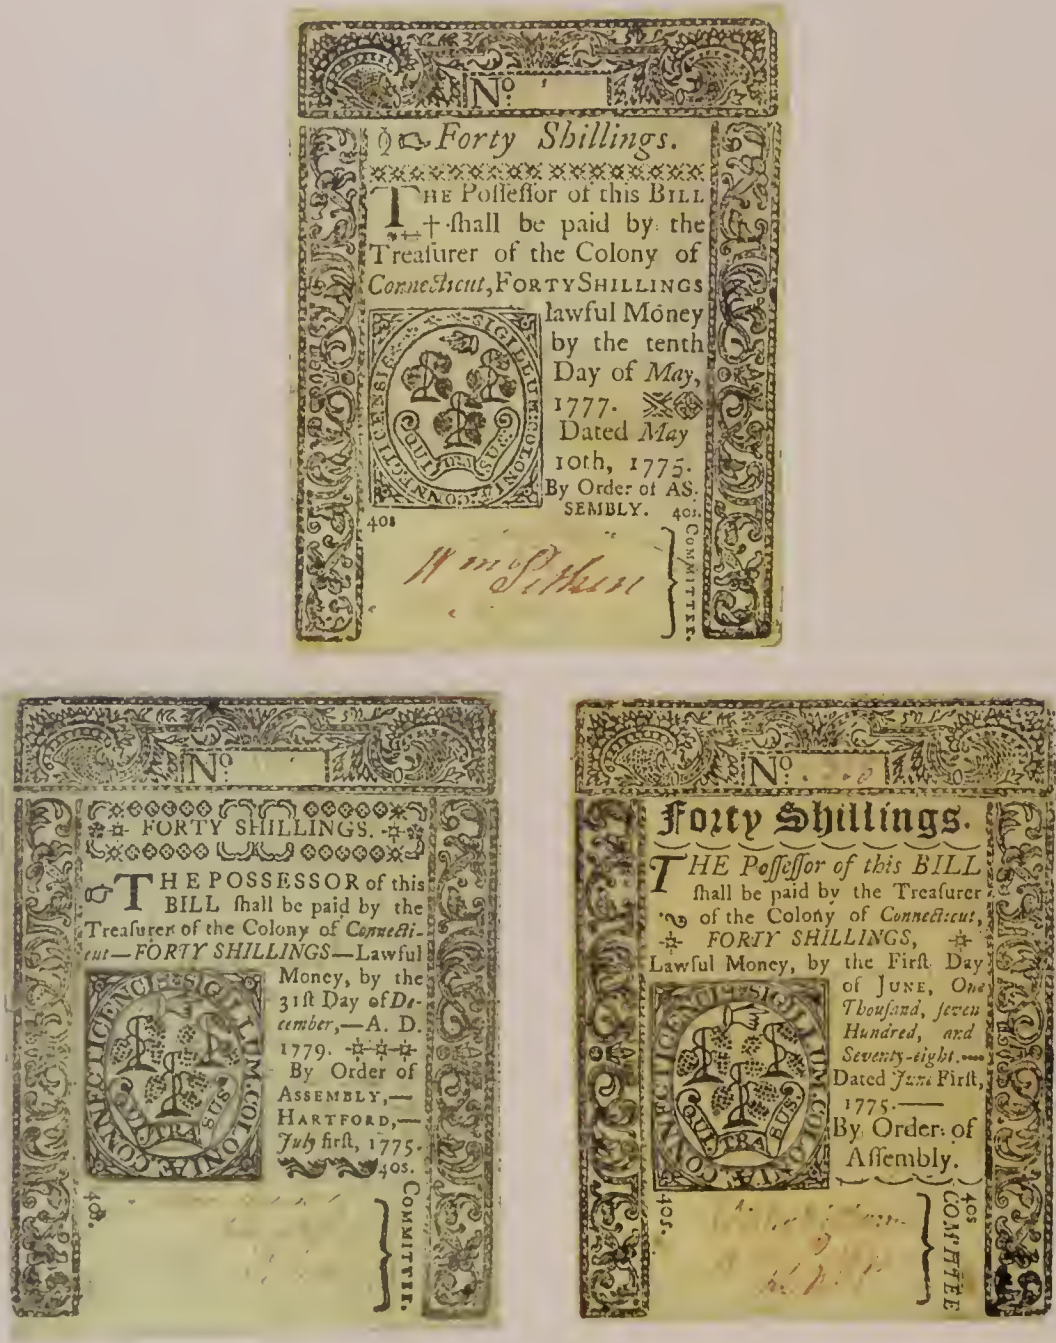 No.
Forty Shillings.
THE Poſſeſſor of this BILL
ſhall be paid by the
Treaſurer of the Colony of
Connecticut, FORTY SHILLINGS
lawful Money
by the tenth
Day of May,
1777.
Dated May
10th, 1775.
By Order of AS-
SEMBLY. 40s.
SIGILLUM: COLONIÆ: CONNECTICENSIS
QUI TRA SUS
40s
COMMITTEE.
Wm Pitkin
No.
FORTY SHILLINGS.
THE POSSESSOR of this
BILL ſhall be paid by the
Treaſurer of the Colony of Connecti-
cut—FORTY SHILLINGS—Lawful
Money, by the
31ſt Day of De-
cember,—A. D.
1779.
By Order of
ASSEMBLY,—
HARTFORD,—
July firſt, 1775.
40s.
SIGILLUM. COLONIÆ. CONNECTICENCIS
QUI TRA SUS
40s.
COMMITTEE.
No.
Forty Shillings.
THE Poſſeſſor of this BILL
ſhall be paid by the Treaſurer
of the Colony of Connecticut,
FORTY SHILLINGS,
Lawful Money, by the Firſt Day
of JUNE, One
Thouſand, ſeven
Hundred, and
Seventy-eight.
Dated June Firſt,
1775.
By Order of
Aſſembly.
SIGILLUM. COLONIÆ. CONNECTICENCIS
QUI TRA SUS
40s.
40s
COMMITTEE